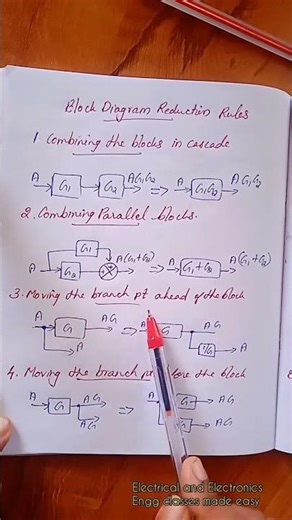 Block Diagram Reduction Rules
1. Combining the blocks in cascade
A G1 G2 AG1G2 => A G1G2 AG1G2
2. Combining Parallel blocks.
G1
A G2 A(G1+G2) => A G1+G2 A(G1+G2)
3. Moving the branch pt ahead of the block
A G AG => A G AG
A 1/G A
4. Moving the branch pt before the block
A G AG => A G AG
AG G AG
Electrical and Electronics
Engg classes made easy